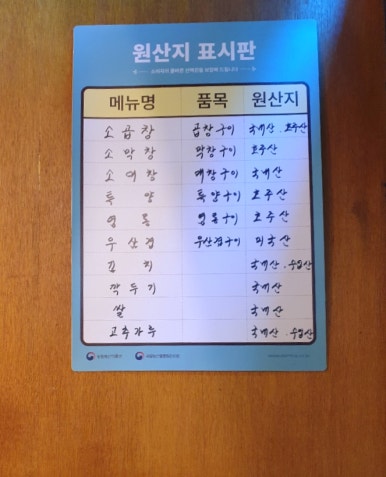 원산지 표시판
소비자의 올바른 선택권을 보장해 드립니다
메뉴명 품목 원산지
소곱창 곱창구이 국내산.호주산
소막창 막창구이 호주산
소대창 대창구이 국내산
특양 특양구이 호주산
염통 염통구이 호주산
우삼겹 우삼겹구이 미국산
김치 국내산.수입산
깍두기 국내산
쌀 국내산
고추가루 국내산.수입산
농림축산식품부 국립농산물품질관리원